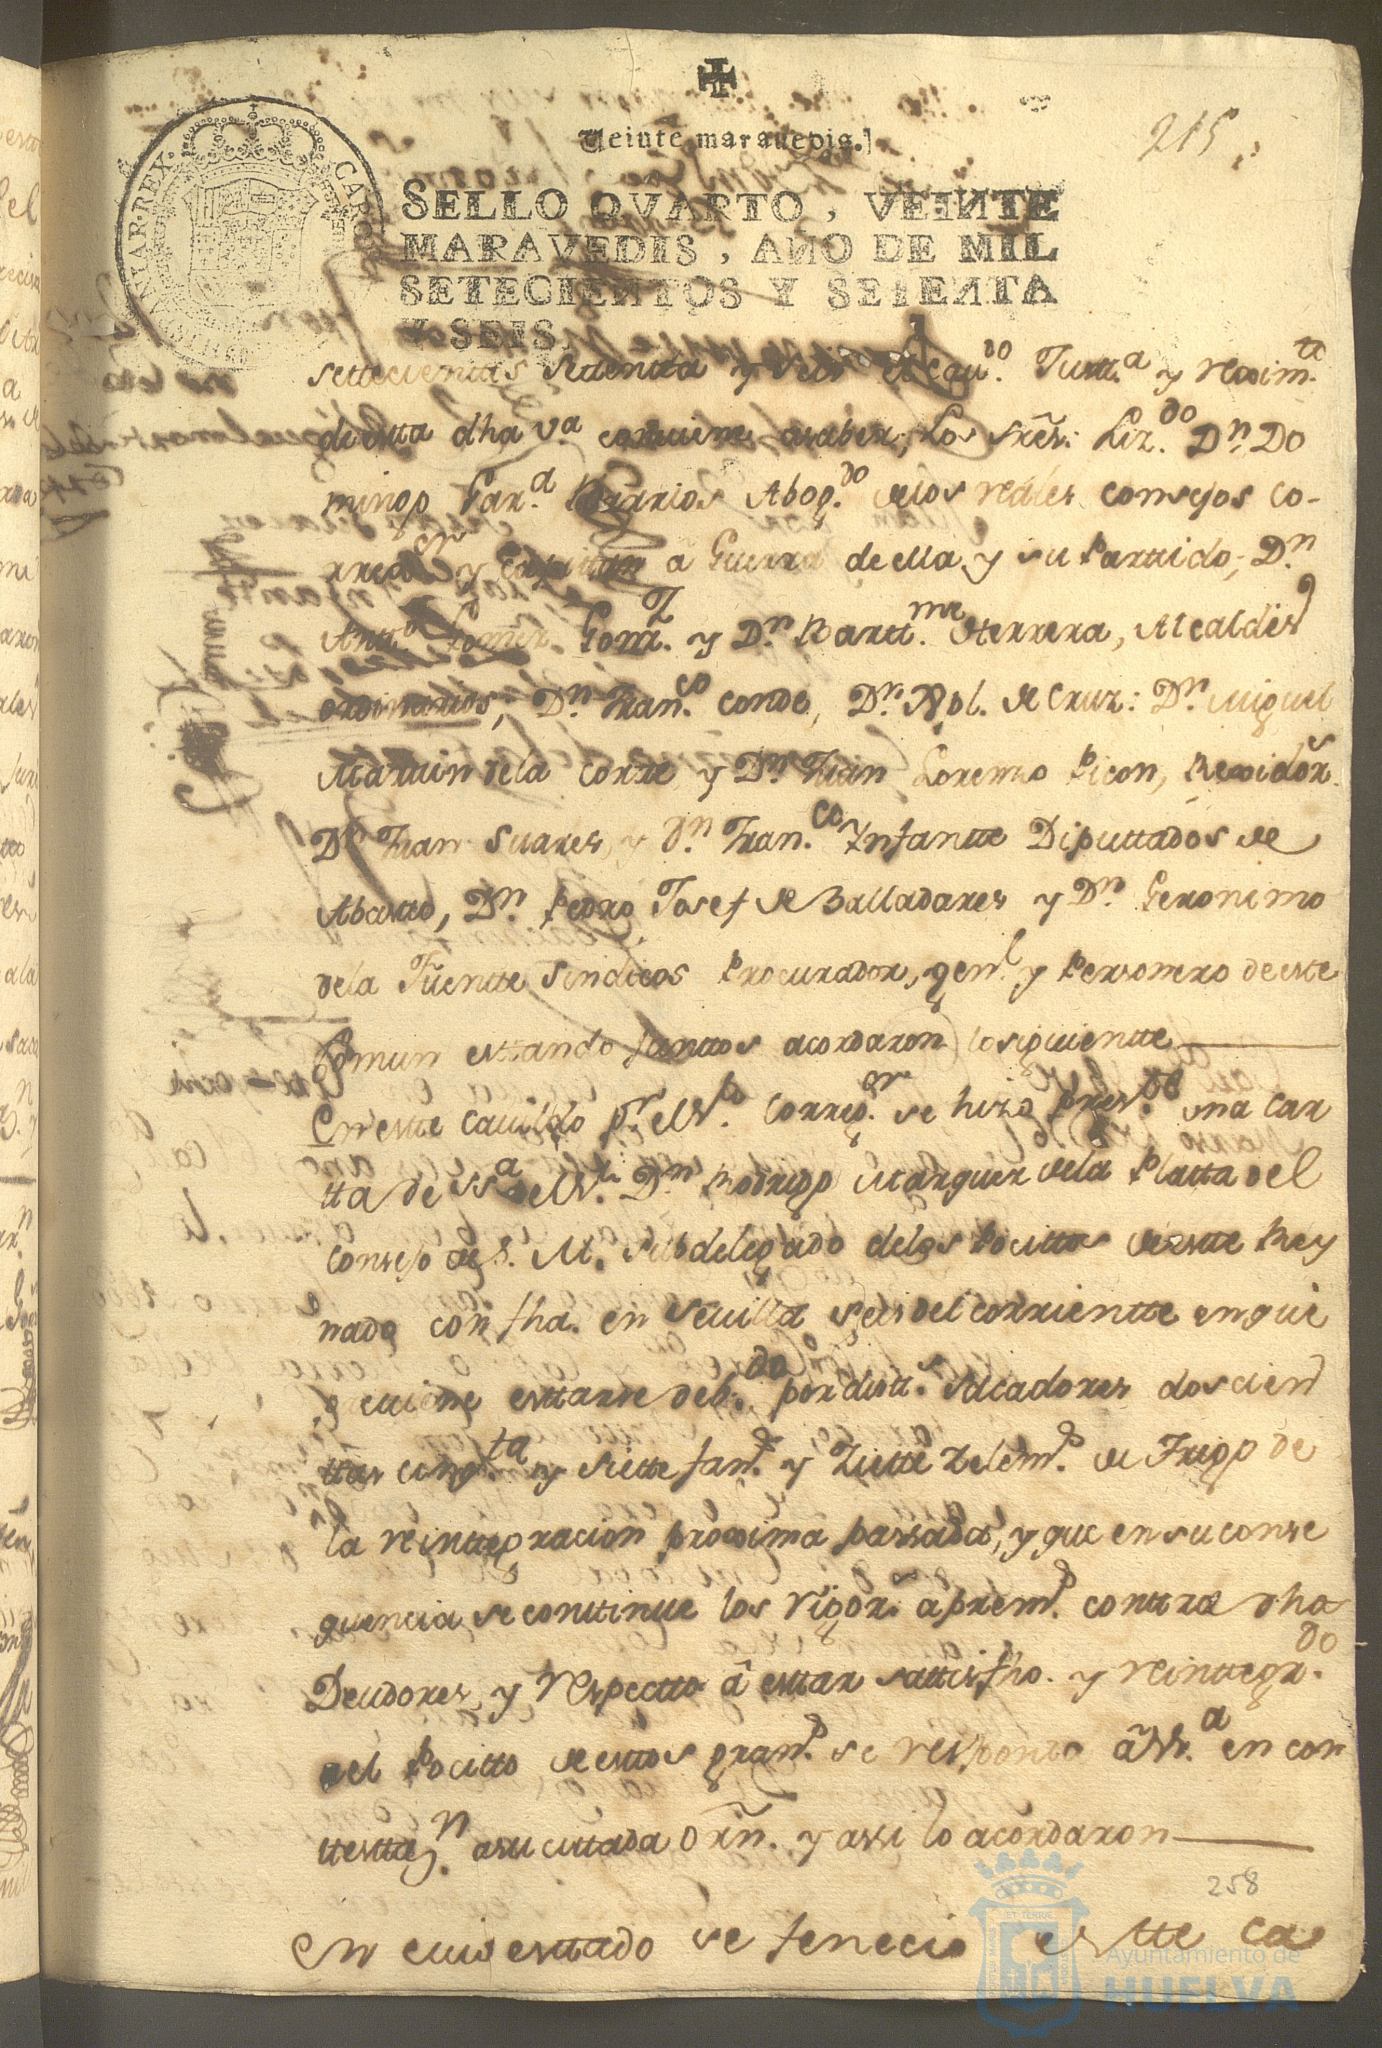 215
Veinte maravedis.
SELLO QVARTO, VEINTE
MARAVEDIS, AÑO DE MIL
SETECIENTOS Y SETENTA
Y SEIS.
settecienttos settentta y seis el Cavdo. Justta. y reximtto.
de estta dha va. combiene a saber, los sres. Lizdo. Dn. Do
mingo Gara. Barrios Abogdo. de los rs. Consejos Co-
rregor. y Capittan â Guerra de ella y su Parttido, Dn.
Antto. Gomz. y Dn. Barttme. Herrera, Alcaldes
ordinarios, Dn. Franco. Conde, Dn. de Cruz: Dn. Miguel
Marttin de la Corte y Dn. Juan Lorenzo Picon, Rexidors.
Dn. Juan Suares, y Dn. Franco. Ynfantte Diputtados de
Abastto, Dn. Pedro Josef de Balladares y Dn. Geronimo
de la Fuentte Sindicos Procurador, genl. y Personero de este
Comun esttando junttos acordaron lo siguientte
En estte Cavildo pr. el Sr. Corregor. se hizo presste. una car
tta de ssa. el Sr. Dn. Rodrigo Marquez de la Platta del
Consejo de S. M. subdelegado de los Pocittos de estte Rey
nado con fha. en Sevilla seis del corrientte en que
previene esttarse debdo. por distts. sacadores doscien
ttas cinqta. y siette fans. y ziette zelems. de Trigo de
la reinttegracion proxima passada, y que en su conse
quencia se conttinue los rigors. apremos. conttra dhos
Deudores, y respectto â esttar sattisfho. y reinttegrdo.
el Pocitto de esttos grans. se responda â Ssa. en con
ttesttazn. a su cittada orn. y assi lo acordaron
258
En cuio esttado se fenecio estte ca
Ayuntamiento de
HUELVA